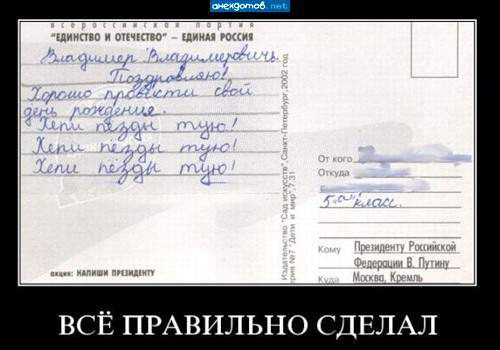 анекдотов.net
всероссийская партия
"ЕДИНСТВО И ОТЕЧЕСТВО" – ЕДИНАЯ РОССИЯ
Владимер Владимеровичь.
Поздравляю!
Хорошо провести свой
день рождение.
Хепи пёзды тую!
Хепи пёзды тую!
Хепи пёзды тую!
акция: НАПИШИ ПРЕЗИДЕНТУ
Издательство "Сад искусств", Санкт-Петербург, 2002 год
серия №7 "Дети и мир", 7.31
От кого
Откуда
5 "а" класс.
Кому Президенту Российской
Федерации В. Путину
Куда Москва, Кремль
ВСЁ ПРАВИЛЬНО СДЕЛАЛ